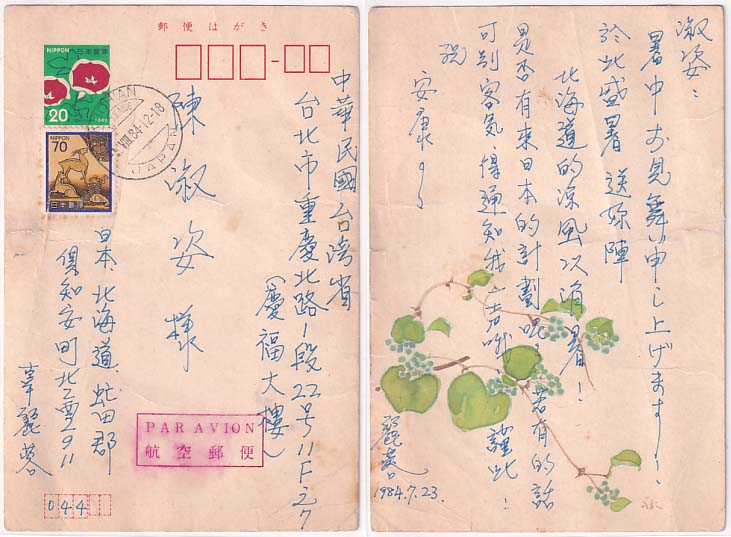 郵便はがき
NIPPON
日本郵便
20
NIPPON
70
日本郵便
JAPAN
中華民國台灣省
台北市重慶北路1段22号11F之7
(慶福大樓)
陳淑姿様
日本、北海道、虻田郡
倶知安町北2東
麗蓉
PAR AVION
航空郵便
044
淑姿:
暑中お見舞い申し上げます!
於此盛暑送妳陣
北海道的涼風以消暑!
是否有來日本的計劃呢?若有的話
可別客氣、得通知我一声哦!謹此!
祝
安康
麗蓉
1984.7.23.